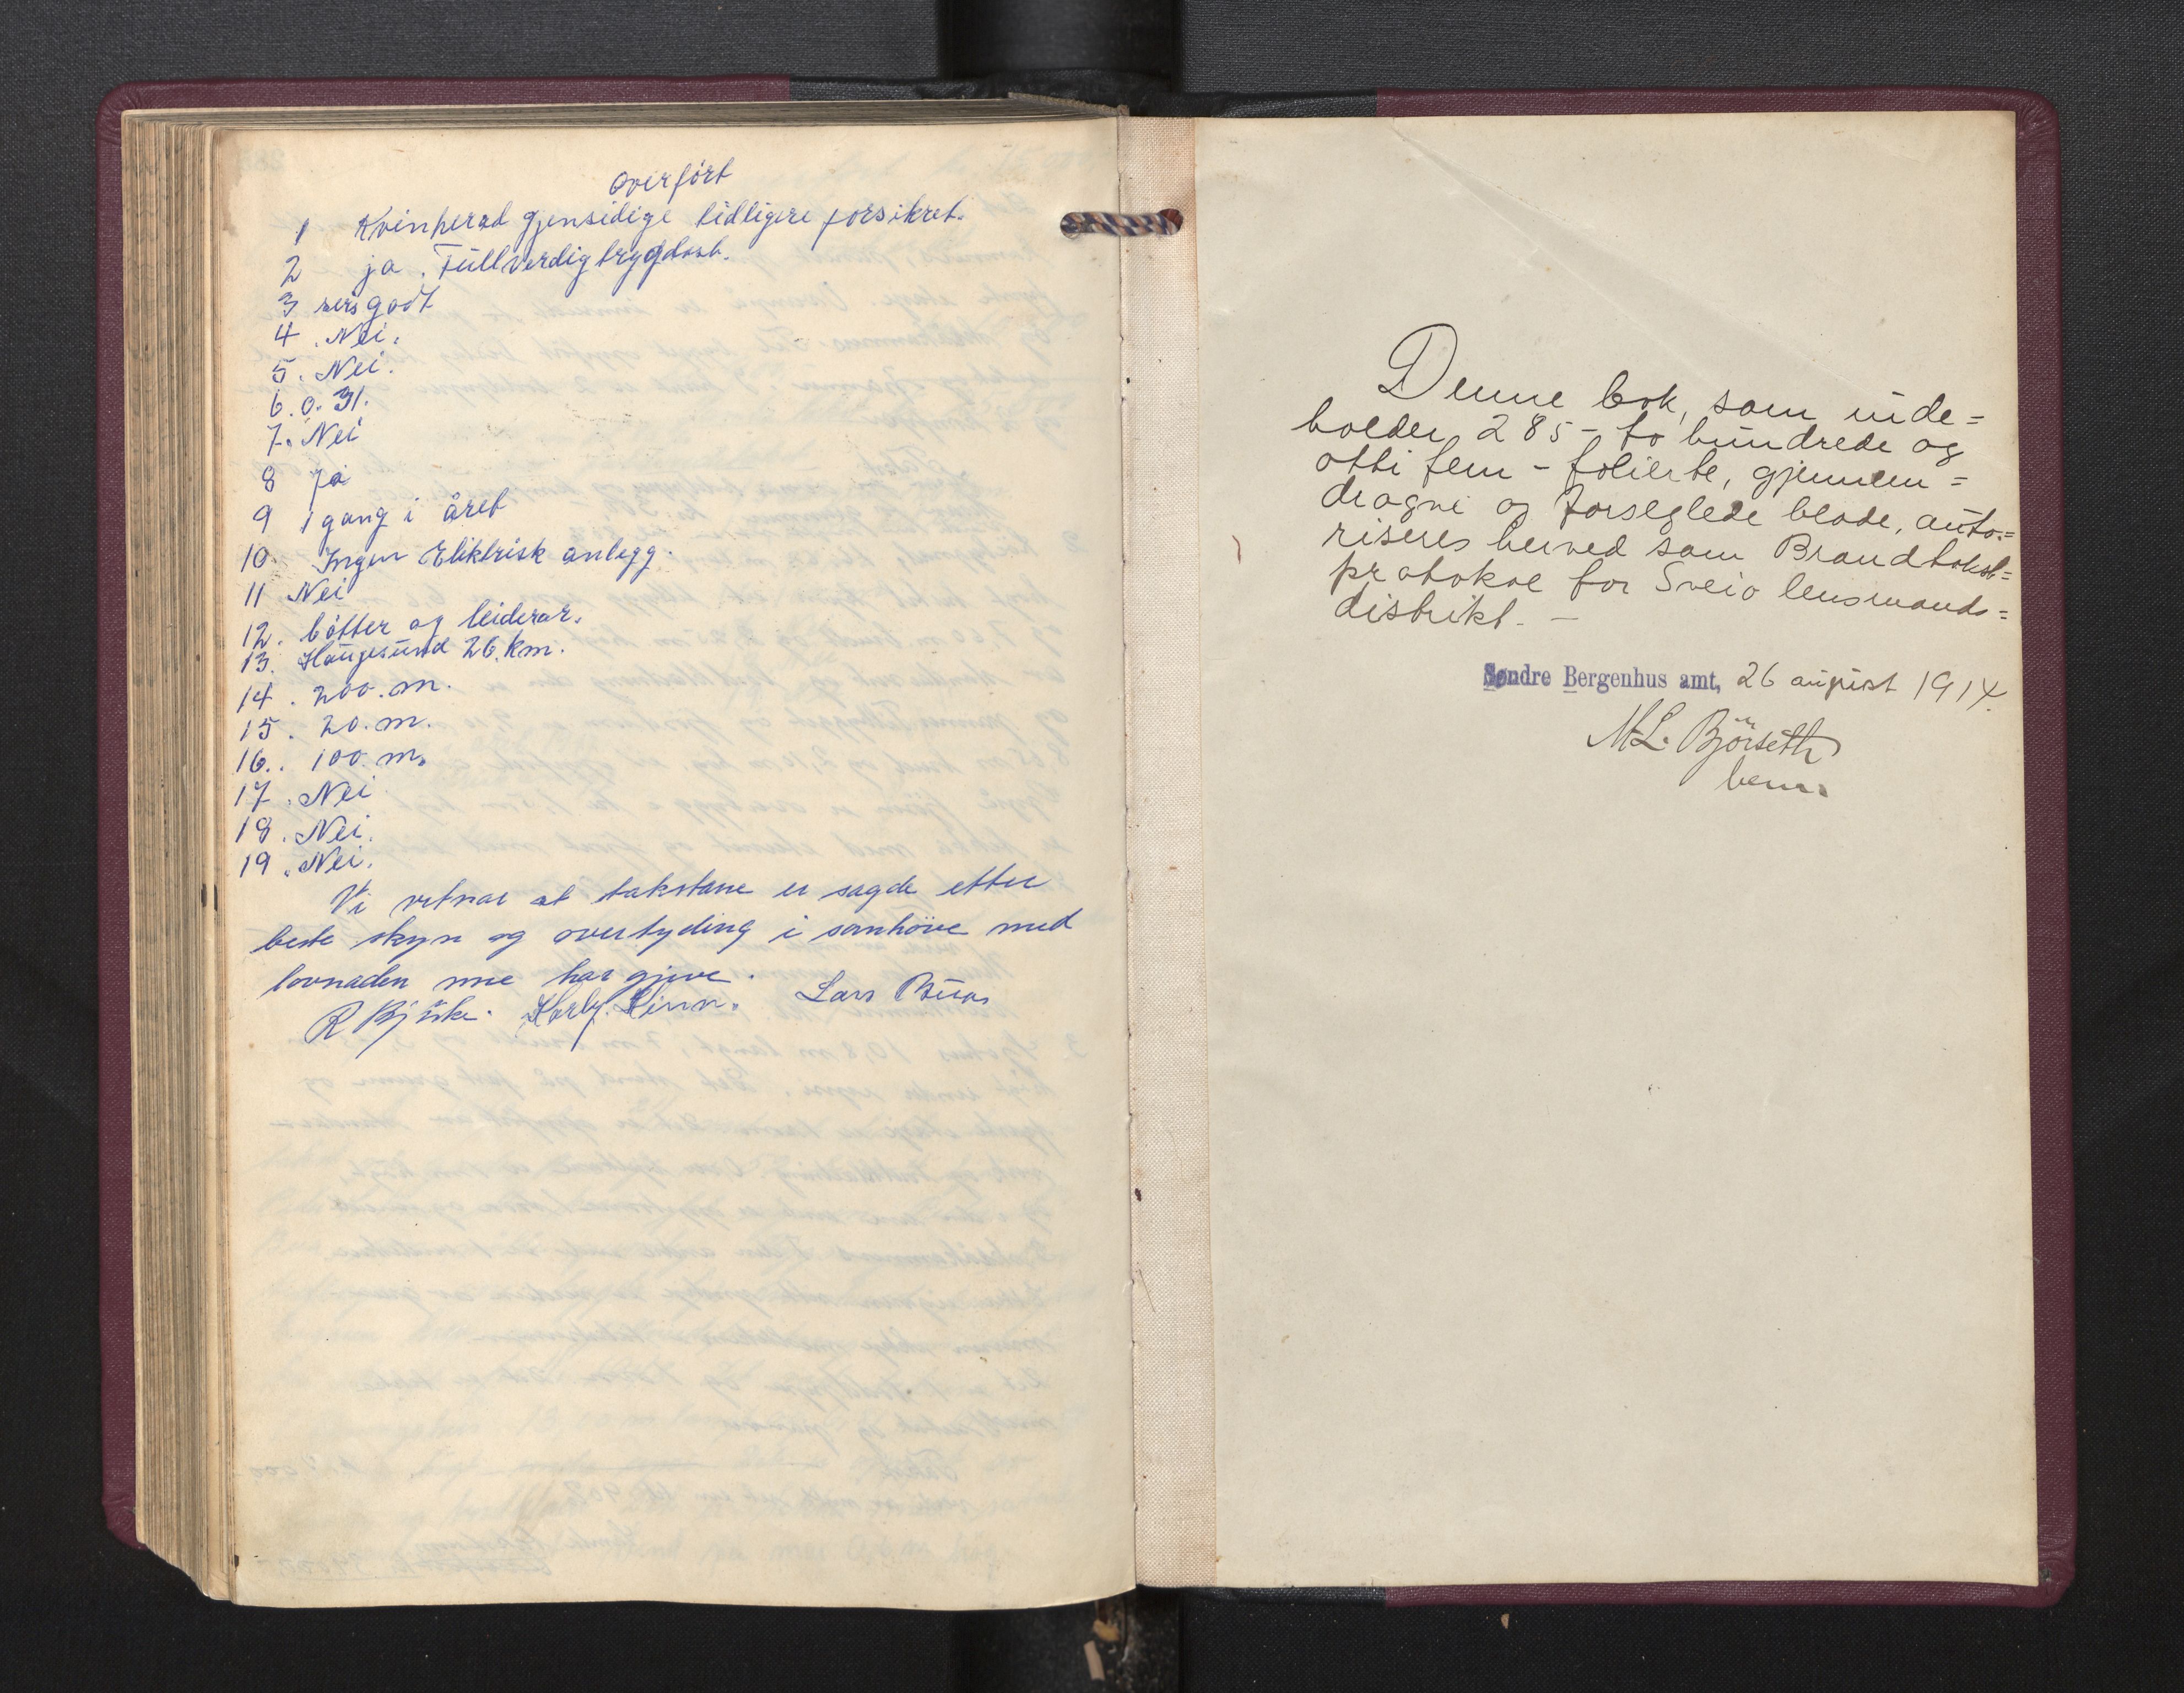 Overført
1 Kvinherad gjensidige tidligere forsikret.
2 ja. Fullverdig trygdast.
3 godt
4. Nei.
5. Nei.
6. 0. 31.
7. Nei
8 Ja
9 1 gang i året
10 Ingen Eliktrisk anlegg.
11 Nei
12. bötter og leiderar.
13. Haugesund 26. km.
14. 200. m.
15. 20. m.
16.. 100. m.
17. Nei
18. Nei.
19. Nei.
Vi vitnar at takstane er sagde etter
beste skyn og overtyding i samhöve med
lovnaden me har gjeve.
R. Bjuke. Linn. Lars Buas
Denne bok, som inde=
holder 285 - to hundrede og
otti fem - folierte, gjennem=
dragne og forseglede blade, auto=
riseres herved som Brandtakst=
protokol for Sveio lensmands=
distrikt. —
Søndre Bergenhus amt, 26 august 1914.
M.L. Björseth
bem.